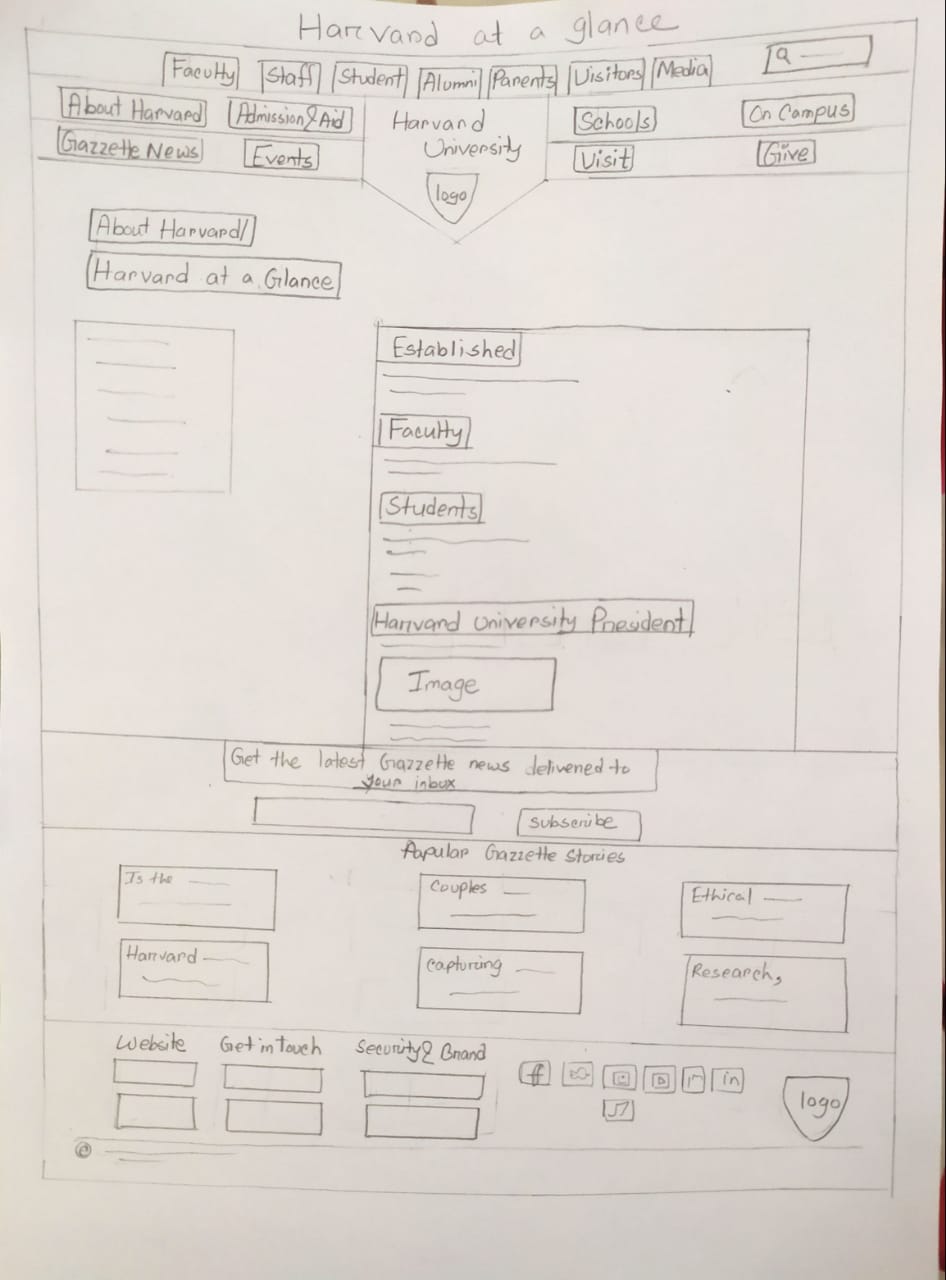 Harvard at a glance
Faculty Staff Student Alumni Parents Visitors Media
About Harvard Admission & Aid Harvard University Schools On Campus
Gazzette News Events Visit Give
logo
About Harvard/
Harvard at a Glance
Established
Faculty
Students
Harvard University President
Image
Get the latest Gazzette news delivered to
your inbox
subscribe
Popular Gazzette Stories
Is the Couples Ethical
Harvard capturing Research,
Website Get in touch Security & Brand
f in
logo
©